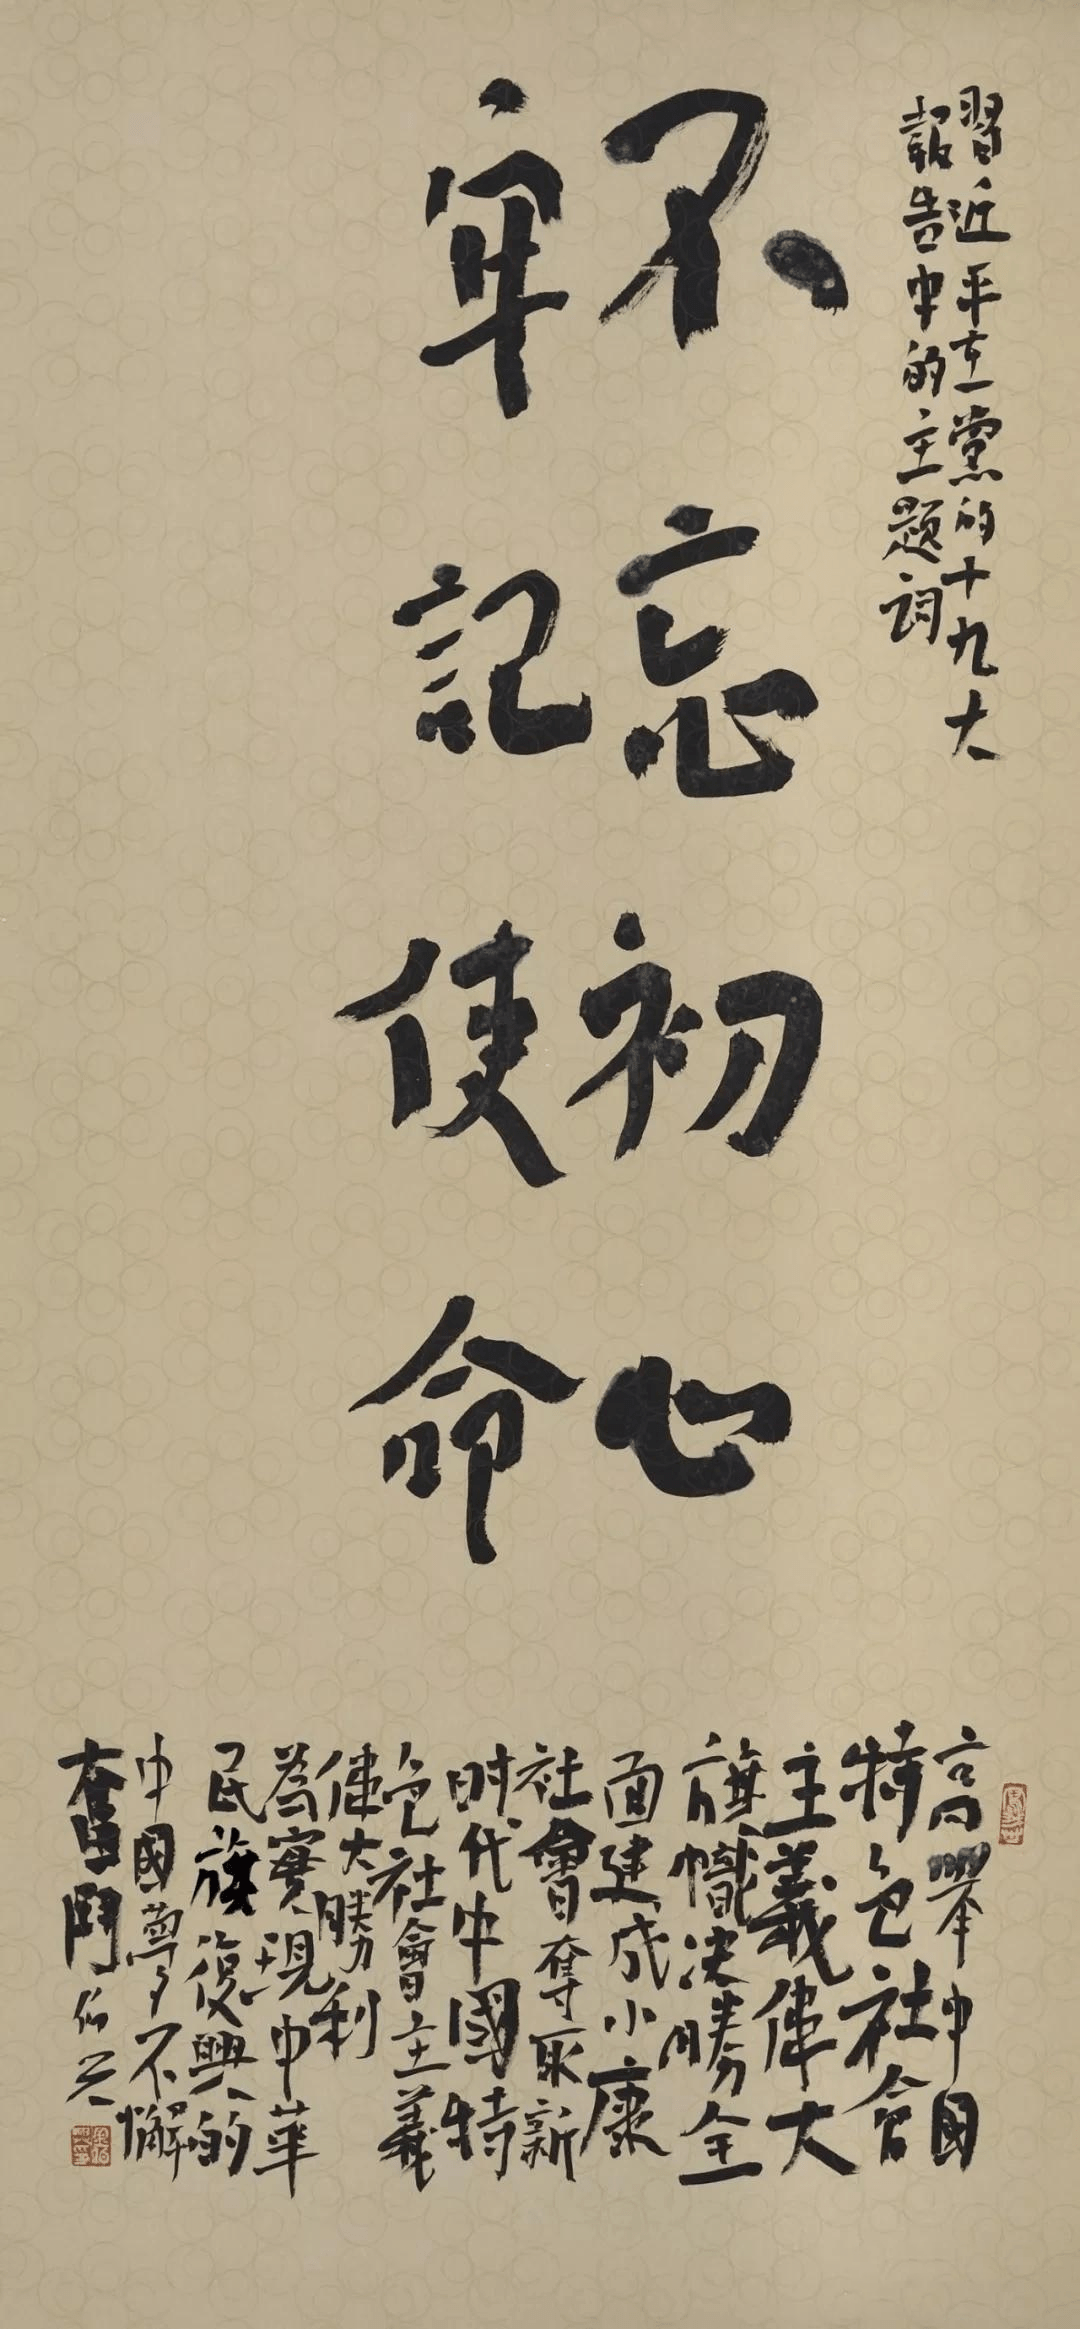 習近平在黨的十九大
報告中的主题词
不忘初心
牢記使命
高舉中国
特色社会
主義偉大
旗幟决勝全
面建成小康
社會奪取新
时代中國特
色社會主義
偉大勝利
為實現中華
民族復興的
中國夢不懈
奮鬥 伯兴